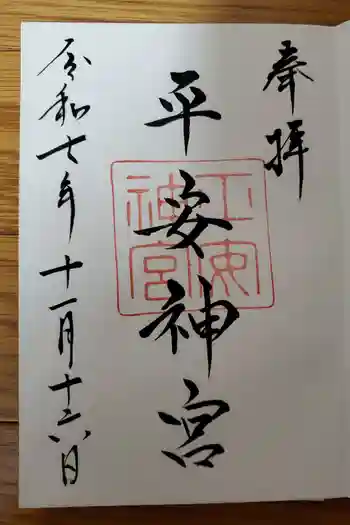 奉拝
平安神宮
平安神宮
令和七年十一月十六日